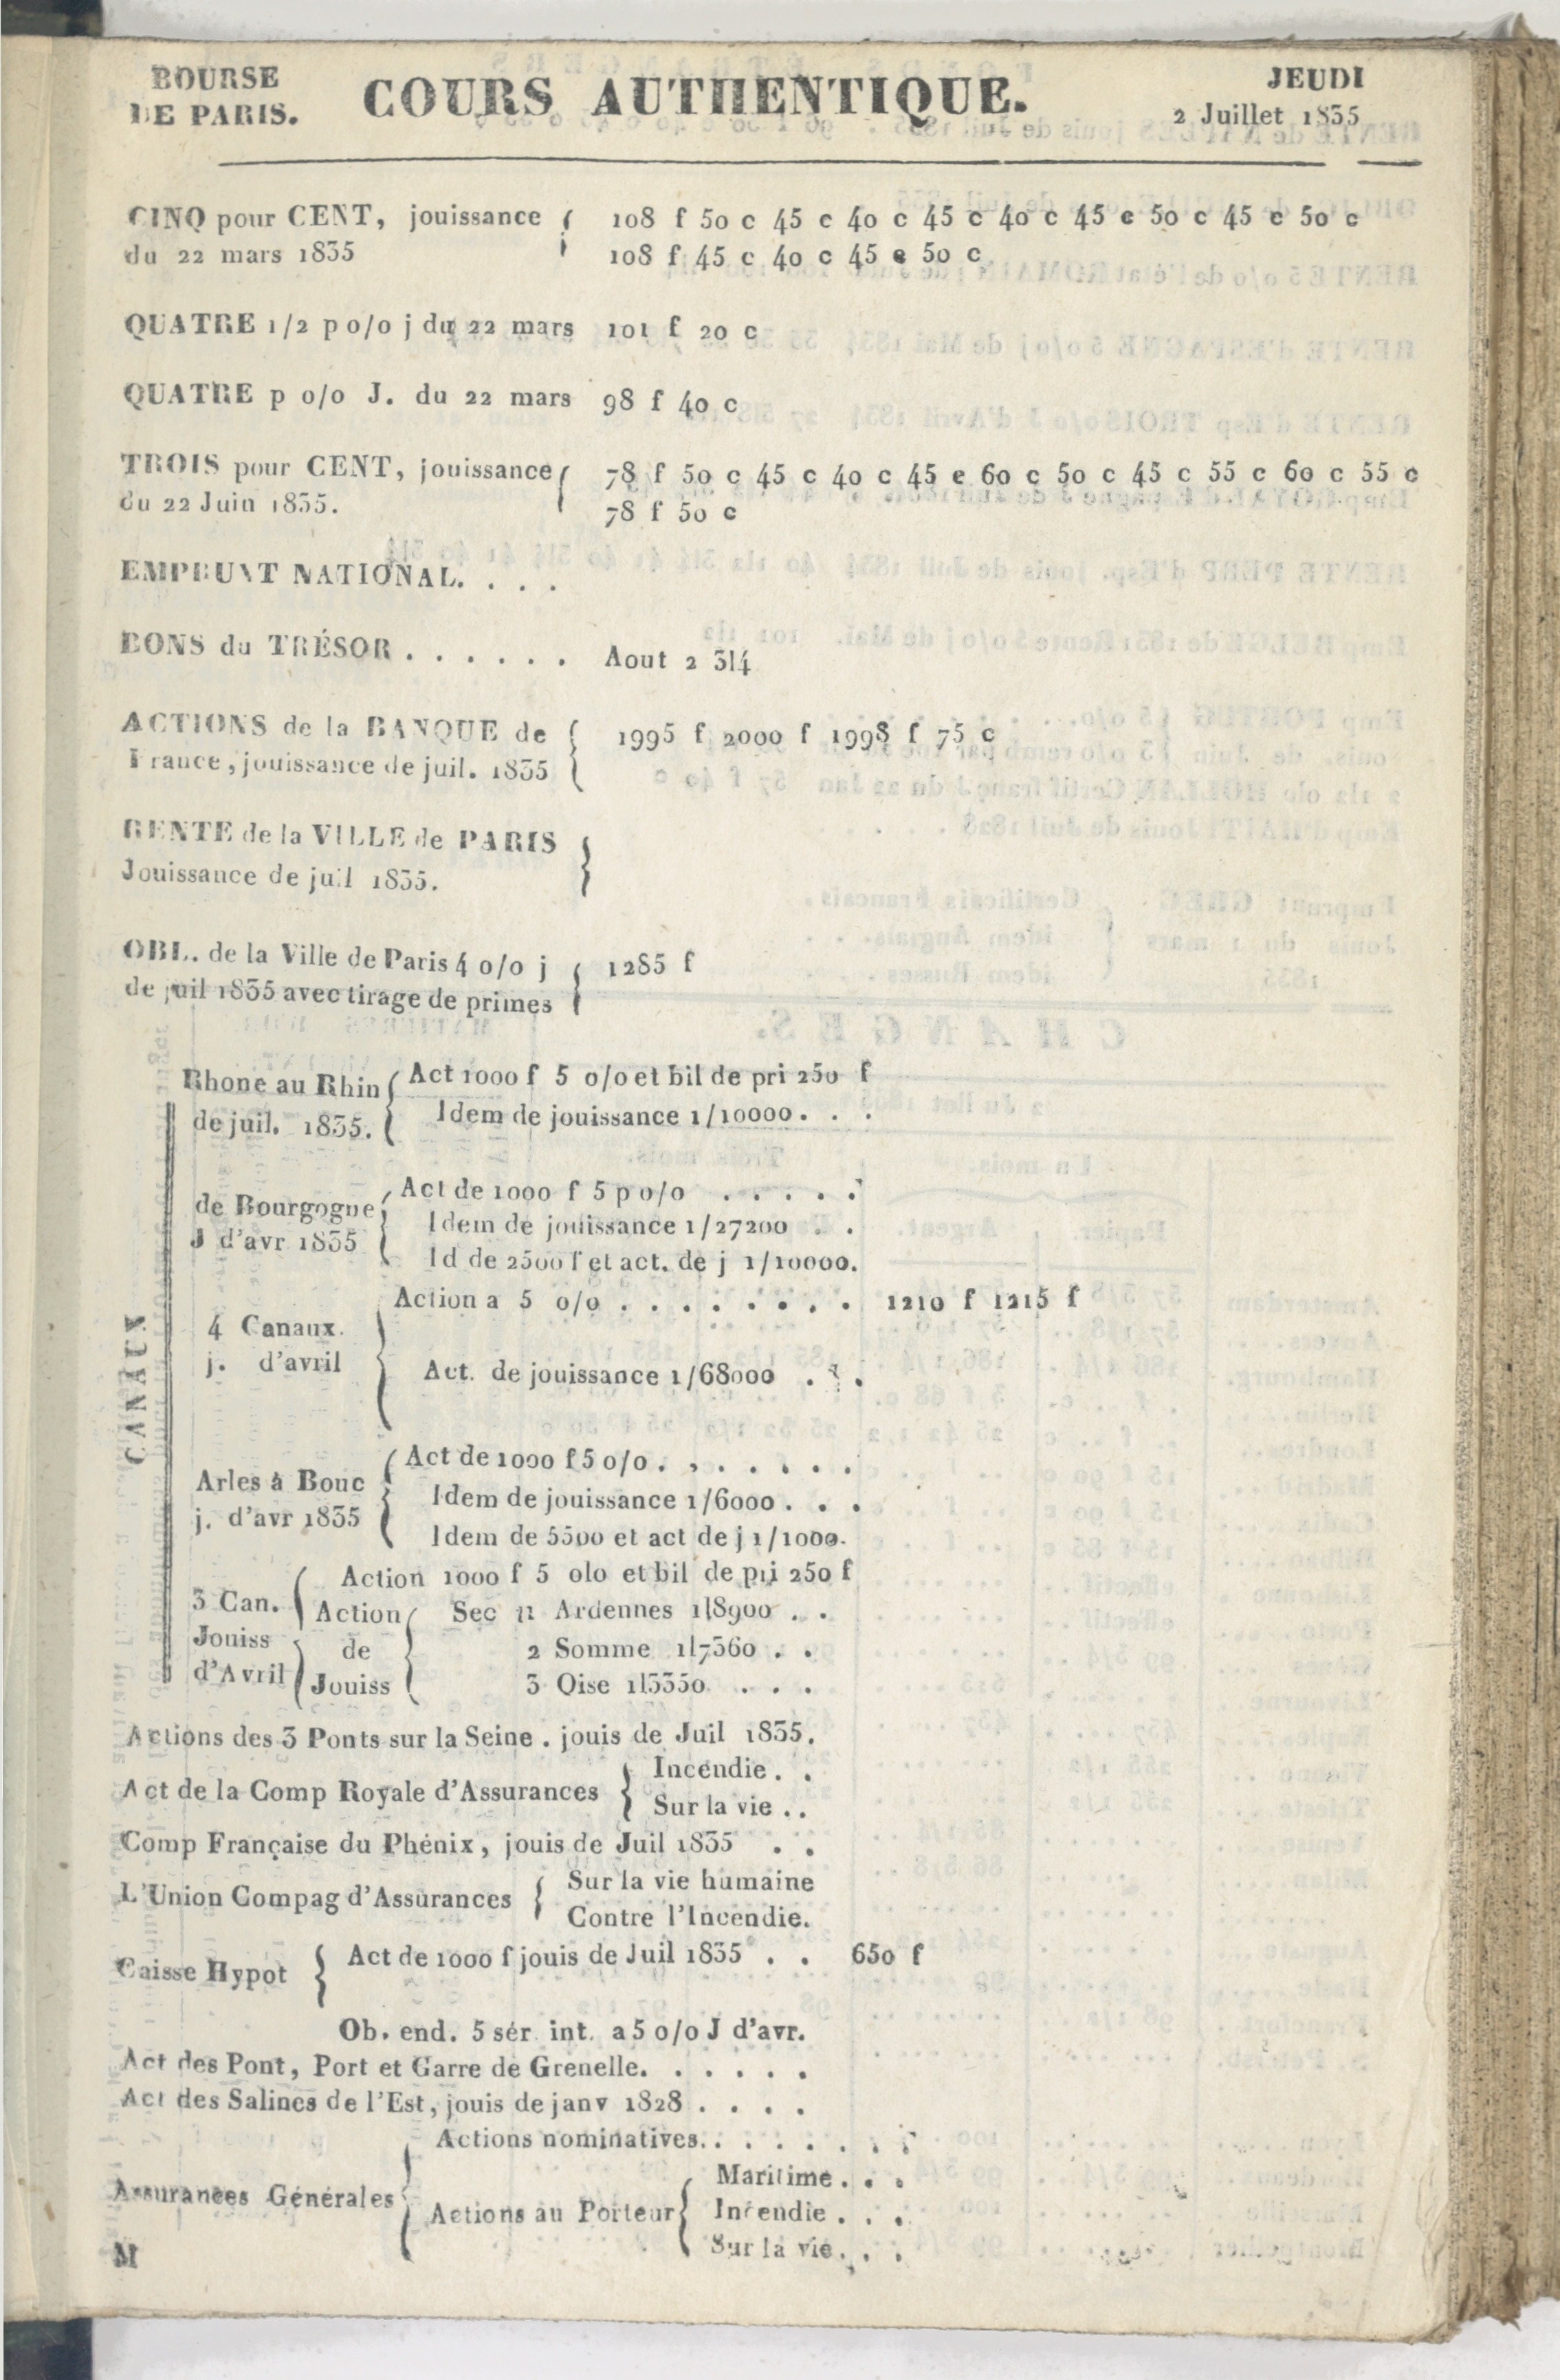 BOURSE
DE PARIS.
COURS AUTHENTIQUE.
JEUDI
2 Juillet 1835
CINQ pour CENT, jouissance 108 f 50 c 45 c 40 c 45 c 40 c 45 c 50 c 45 c 50 c
du 22 mars 1835 108 f 45 c 40 c 45 c 50 c
QUATRE 1/2 p o/o j du 22 mars 101 f 20 c
QUATRE p o/o J. du 22 mars 98 f 40 c
TROIS pour CENT, jouissance 78 f 50 c 45 c 40 c 45 c 60 c 50 c 45 c 55 c 60 c 55 c
du 22 Juin 1835. 78 f 50 c
EMPRUNT NATIONAL. . . .
BONS du TRÉSOR . . . . . . Aout 2 3|4
ACTIONS de la BANQUE de 1995 f 2000 f 1998 f 75 c
France, jouissance de juil. 1835
RENTE de la VILLE de PARIS
Jouissance de juil 1835.
OBL. de la Ville de Paris 4 o/o j 1285 f
de juil 1835 avec tirage de primes
CANAUX
Rhone au Rhin Act 1000 f 5 o/o et bil de pri 250 f
de juil. 1835. Idem de jouissance 1/10000. . .
de Bourgogne Act de 1000 f 5 p o/o . . . . .
J d'avr 1835 Idem de jouissance 1/27200 . .
Id de 2500 f et act. de j 1/10000.
Action a 5 o/o . . . . . . . . 1210 f 1215 f
4 Canaux.
j. d'avril Act. de jouissance 1/68000 . . .
Arles à Bouc Act de 1000 f 5 o/o . . . . . . .
j. d'avr 1835 Idem de jouissance 1/6000 . . .
Idem de 5500 et act de j 1/1000.
Action 1000 f 5 o|o et bil de pri 250 f
3 Can. Action Sec 1 Ardennes 1|8900 . .
Jouiss de 2 Somme 1|7360 . .
d'Avril Jouiss 3 Oise 1|3350 . . .
Actions des 3 Ponts sur la Seine . jouis de Juil 1835.
Act de la Comp Royale d'Assurances Incendie. .
Sur la vie . .
Comp Française du Phénix, jouis de Juil 1835 . .
L'Union Compag d'Assurances Sur la vie humaine
Contre l'Incendie.
Caisse Hypot Act de 1000 f jouis de Juil 1835 . . 650 f
Ob. end. 5 sér. int. a 5 o/o J d'avr.
Act des Pont, Port et Garre de Grenelle. . . . . .
Act des Salines de l'Est, jouis de janv 1828 . . . .
Actions nominatives. . . . . . . .
Assurances Générales Actions au Porteur Maritime . . .
Incendie . . .
Sur la vie. . .
M